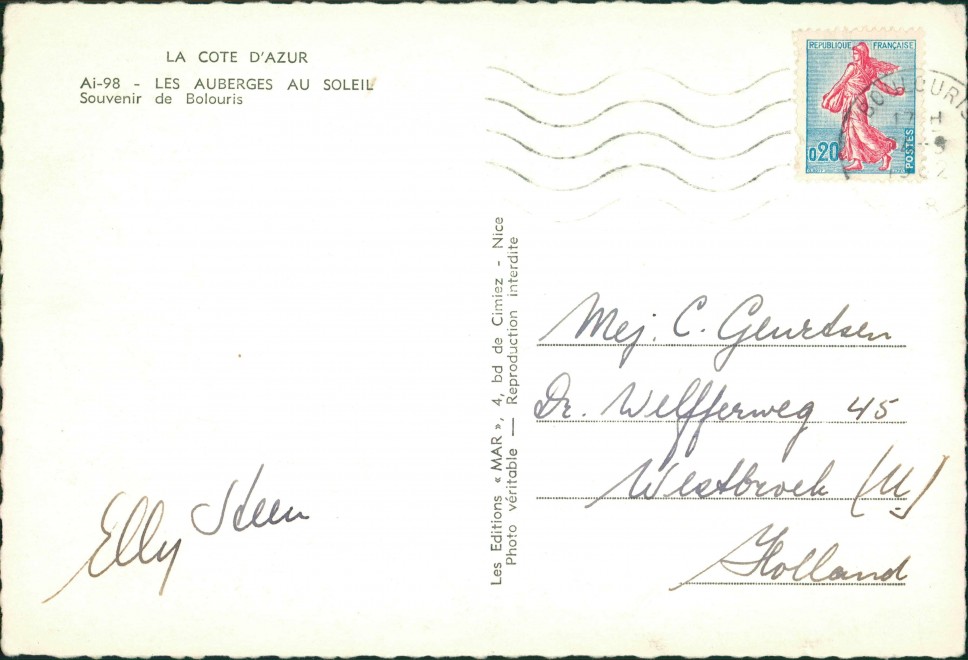 LA COTE D'AZUR
Ai-98 - LES AUBERGES AU SOLEIL
Souvenir de Bolouris
REPUBLIQUE FRANÇAISE
0,20
POSTES
BOULOURIS
17 H
Les Editions « MAR », 4, bd de Cimiez - Nice
Photo véritable — Reproduction interdite
Mej. C. Geurtsen
Dr. Welfferweg 45
Westbroek (U.)
Holland
Elly Steen